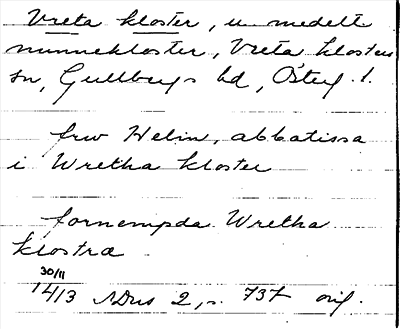 Vreta kloster, u. medelt
nunnekloster, Vreta klosters
sn, Gullbergs hd, Österg. l.
frw Helin, abbatissa
i Wretha kloster
fornempda Wretha
klostra
30/11
1413 SDns 2, s. 737 orig.